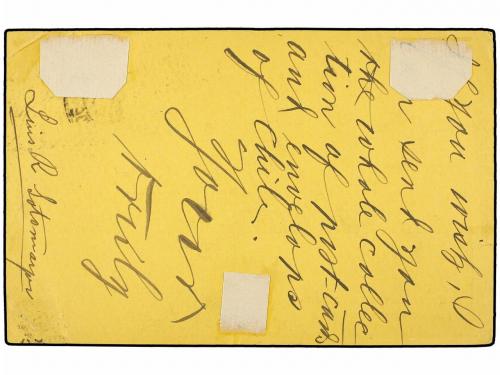 If you wish, I
can send you
the whole collec
tion of post-cards
and envelops
of Chile.
Yours
truly
Luis R Sotomayor